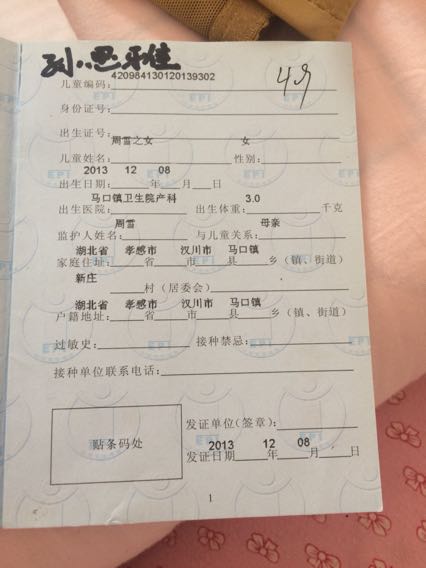 孙思雅
420984130120139302
儿童编码：
身份证号：
出生证号：
周雪之女 女
儿童姓名： 性别：
2013 12 08
出生日期： 年 月 日
马口镇卫生院产科 3.0
出生医院： 出生体重： 千克
周雪 母亲
监护人姓名： 与儿童关系：
湖北省 孝感市 汉川市 马口镇
家庭住址： 省 市 县 乡（镇、街道）
新庄
村（居委会）
湖北省 孝感市 汉川市 马口镇
户籍地址： 省 市 县 乡（镇、街道）
过敏史： 接种禁忌：
接种单位联系电话：
发证单位（签章）：
贴条码处
2013 12 08
发证日期 年 月 日
1